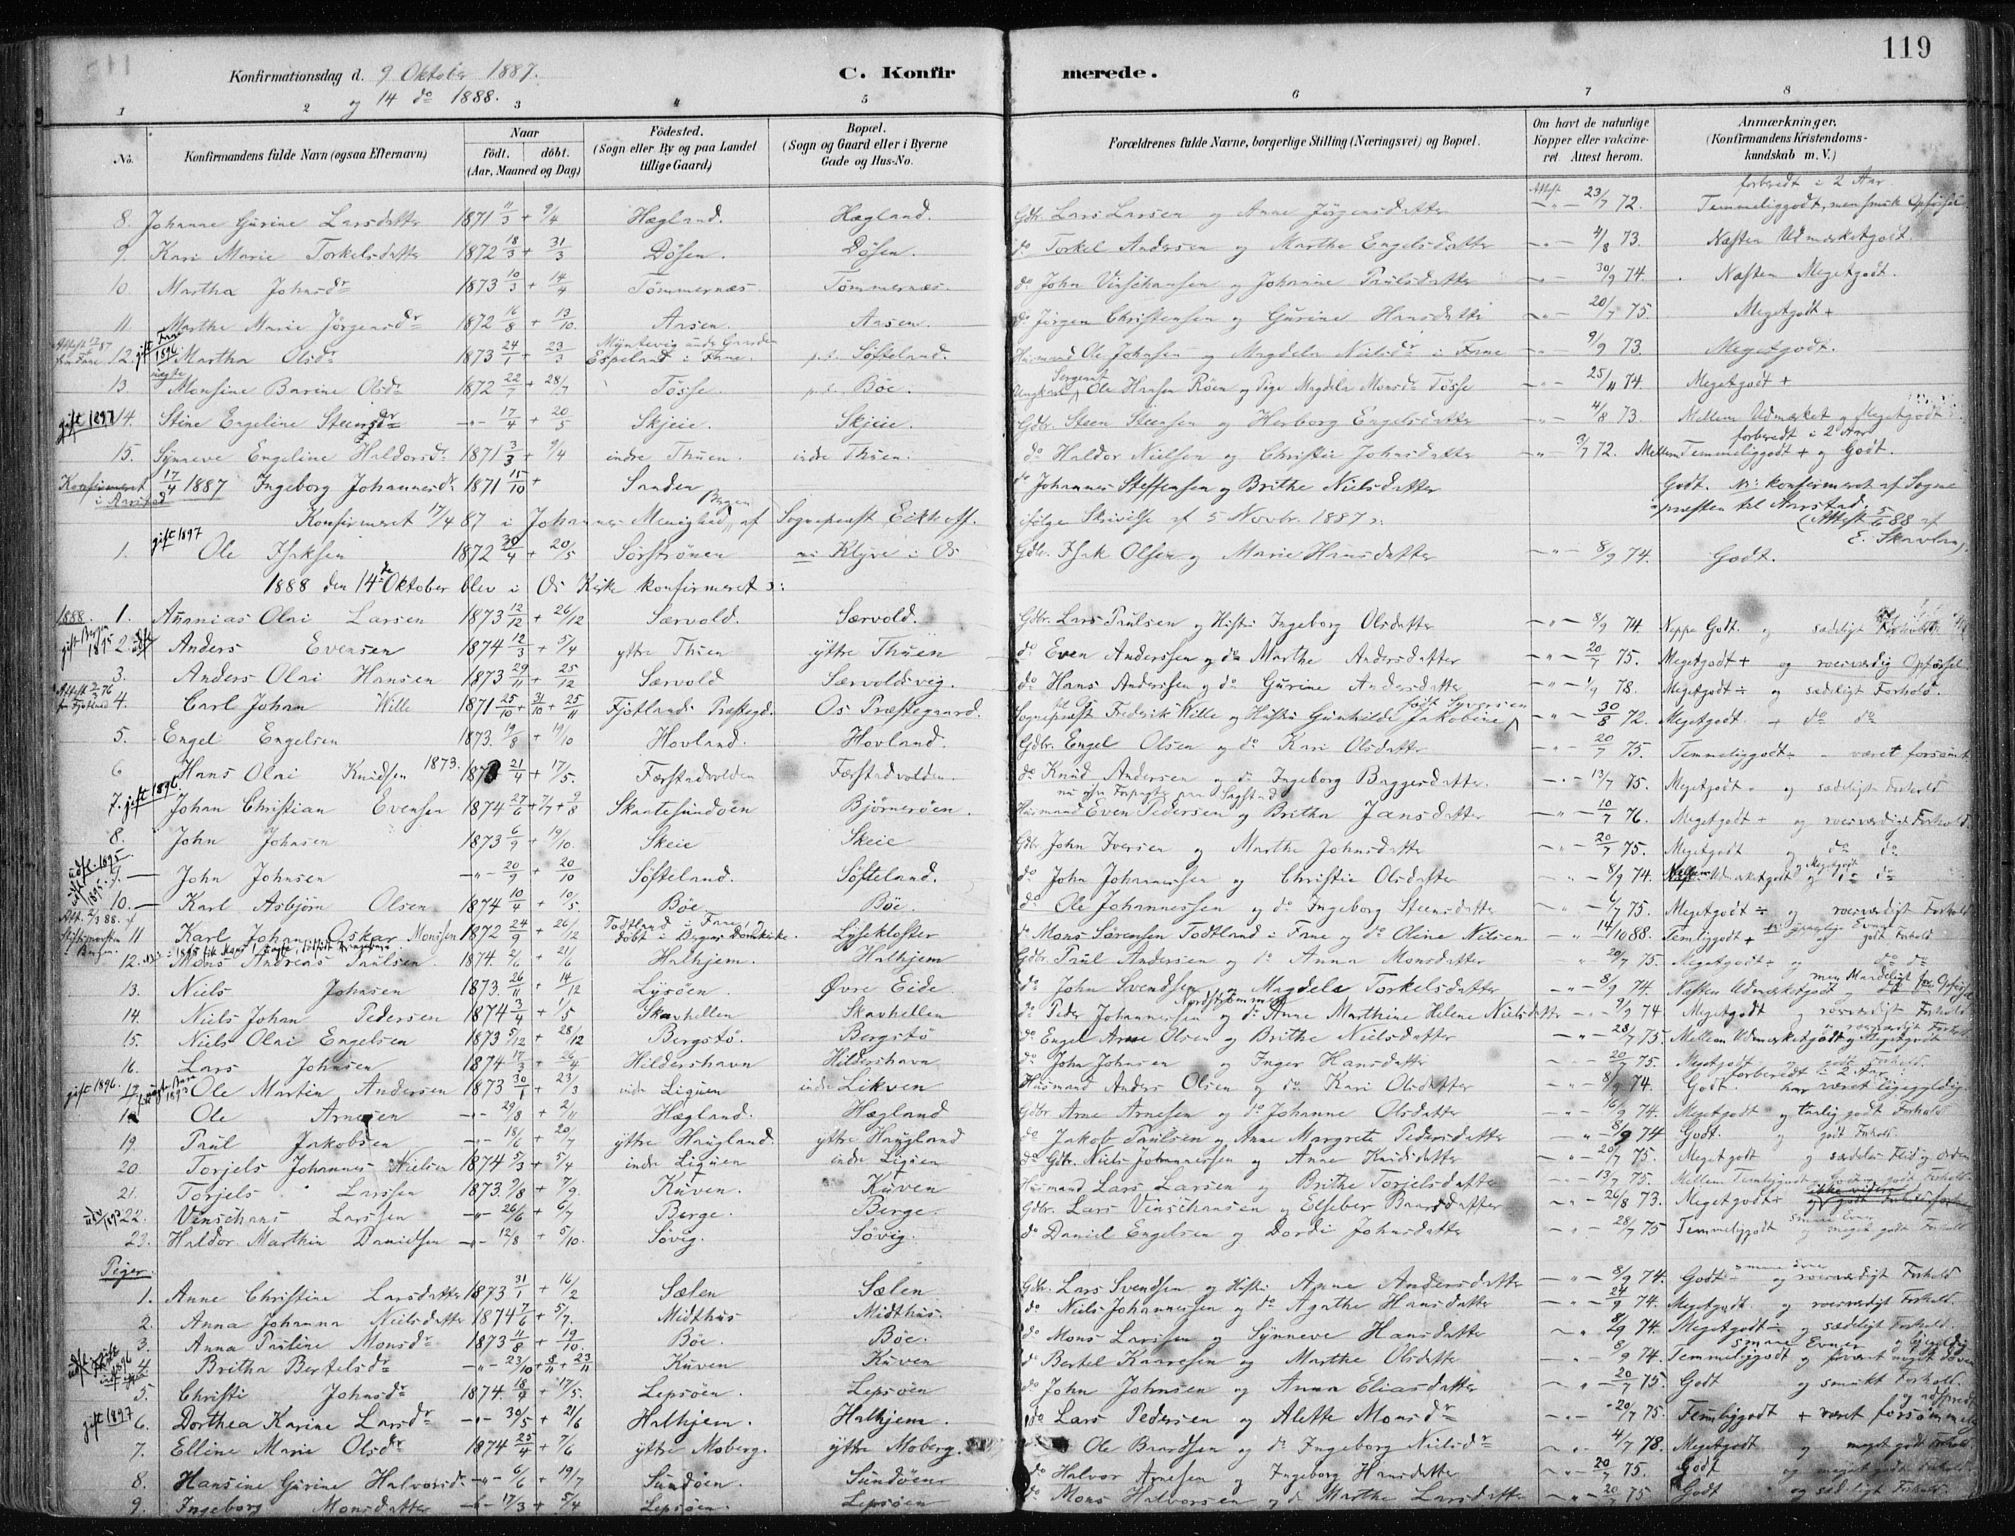 119
Konfirmationsdag d. 9 Oktober 1887. C. Konfirmerede.
og 14 do 1888.
1 2 3 4 5 6 7 8
No. Konfirmandens fulde Navn (ogsaa Efternavn) Naar født, døbt. (Aar, Maaned og Dag) Fødested. (Sogn eller By og paa Landet tillige Gaard) Bopæl. (Sogn og Gaard eller i Byerne Gade og Hus-No. Forældrenes fulde Navne, borgerlige Stilling (Næringsvei) og Bopæl. Om havt de naturlige Kopper eller vakcineret Attest herom. Anmærkninger. (Konfirmandens Kristendomskundskab m. V.)
forberedt i 2 Aar.
8. Johanne Gurine Larsdatter 1871 11/3 + 9/4 Hægland. Hægland. Gdbr. Lars Larsen og Anne Jørgensdatter Attest 23/7 72. Temmeliggodt, men smuk Opførsel
9. Kari Marie Torkelsdatter 1872 18/3 + 31/3 Døsen. Døsen. do Torkel Andersen og Marthe Engelsdatter 4/8 73. Næsten Udmærketgodt.
10. Martha Johnsdr 1873 10/3 + 14/4 Tømmernæs. Tømmernæs. do John Vinschansen og Johanne Paulsdatter 30/9 74. Næsten Megetgodt.
11. Marthe Marie Jørgensdr 1872 16/8 + 13/10. Aasen. Aasen. do Jørgen Christensen og Gurine Hansdatter 20/7 75 Megetgodt +
12. gift Fane 1896 Martha Olsdr 1873 24/1 + 23/3 Espeland i Fane. Søfteland. Husmand Ole Johnsen og Magdela Nielsdr i Fane 9/9 73. Megetgodt.
13 uægte Monsine Barine Olsdr 1872 22/7 + 28/7 Tøsse. Bøe. Ungkarl Sergeant Ole Hansen Røen og Pige Magdela Monsdr Tøsse 25/11 74. Megetgodt +
gift 1897 14. Stine Engeline Steensdr 17/4 + 20/5 Skjeie. Skjeie. Gdbr. Steen Steensen og Herborg Engelsdatter 4/8 73. Mellem Udmærket og Megetgodt
forberedt i 2 Aar
15. Synneve Engeline Haldorsdr 1871 3/3 + 9/4 indre Thuen. indre Thuen. do Haldor Nielsen og Christie Johnsdatter 72. Mellem Temmeliggodt + og Godt.
Konfirmeret i Aarstad 17/4 1887 Ingeborg Johannesdr 1871 15/10 + Sanden do Johannes Steffensen og Brithe Nielsdatter Godt. NB: konfirmeret af Sogne
Konfirmeret 17/4 87 i Johannes Menighed, Bergen af Sognepræst Eikhoff. ifølge Skrivelse af 5 Novbr. 1887. præsten til Aarstad.
(Attest 5/6 88 af E. Skavlan).
1. gift 1897 Ole Isaksen 1872 30/4 + 20/5 Sørstrønen Klyve i Os Gdbr. Isak Olsen og Marie Hansdatter 8/9 74. Godt.
1888 den 14de Oktober blev i Os Kirke konfirmeret:
1888. 1. Ananias Olai Larsen 1873 12/12 + 26/12 Særvold. Særvold. Gdbr. Lars Paulsen og Hustru Ingeborg Olsdatter 8/9 74. Neppe Godt. og sædeligt Forhold
gift Bergen 1895 2. Anders Evensen 1874 12/3 + 5/4 yttre Thuen yttre Thuen do Even Anderssen og do Marthe Andersdatter 20/7 75. Megetgodt + og roesværdig Opførsel
3. Anders Olai Hansen 1873 29/11 + 25/12 Særvold Særvoldsvig. do Hans Anderssen og do Gurine Andersdatter 1/9 78. Megetgodt ÷ og sædeligt Forhold.
4. Carl Johan Wille 1871 25/10 + 31/10 + 25/11 Fjotlands Præstegd. Os Præstegaard. Sognepræst Frederik Wille og Hustru Gunhilde Jakobine født Syversen 30/8 72. Megetgodt + do do
5. Engel Engelsen 1873. 19/8 + 19/10 Hovland. Hovland. Gdbr. Engel Olsen og do Kari Olsdatter 20/7 75. Temmeliggodt - været forsømt.
6 Hans Olai Knudsen 1873. 21/4 + 17/5. Færstadvolden Færstadvolden. do Knud Andersen og do Ingeborg Baggesdatter. 13/7 75. Megetgodt og sædeligt Forhold
7. gift 1896. Johan Christian Evensen 1874 27/6 + 7/7 + 9/8 Skaatesundøen Bjørnerøen. Husmand Even Pedersen og Britha Jansdatter 10/7 76. Megetgodt + og roesværdigt Forhold.
8. John Johnsen 1873 6/9 + 19/10. Skeie Skeie. Gdbr. John Iversen og Marthe Johnsdatter 20/7 75. Megetgodt og do do
9. John Johnsen 20/9 + 20/10 Søfteland. Søfteland. do John Johannessen og Christie Olsdatter 8/9 74. Mellem Udmærketgodt og Megetgodt do do
10. Karl Asbjørn Olsen 1874 10/4 + 10/5 Bøe. Bøe. do Ole Johannessen og do Ingeborg Steensdatter 4/7 75. Megetgodt ÷ og roesværdigt Forhold
11 Karl Johan Oskar Monsen 1872 24/9 + 26/12 Todtland i Fane, døbt i Bergens Domkirke. Lysekloster do Mons Sørensen Todtland i Fane og do Oline Nilsen 14/10 88. Temliggodt + og godt Forhold
12. Mons Andreas Paulsen 1874. 2/6 + 21/6 Halhjem. Halhjem Gdbr. Paul Andersen og do Anna Monsdatter 20/7 75. Megetgodt ÷ og do do
13. Niels Johnsen 1873. 26/11 + 14/12 Lysøen. Øvre Eide. do John Svendsen og Magdela Torkelsdatter 8/9 74. Næsten Udmærketgodt
14. Niels Johan Pedersen 1874 3/4 + 1/5 Skavhellen Skavhellen do Peder Johannessen og do Anne Marthine Helene Nielsdatter 9/9 74 Megetgodt og roesværdigt Forhold
15. Niels Olai Engelsen 1873 5/12 + 28/12 Bergstø. Bergstø do Engel Arne Olsen og Brithe Nielsdatter 28/7 75. Mellem Udmærketgodt og Megetgodt
16. Lars Johnsen 1874 17/3 + 26/4 Hildershavn Hildershavn do John Johnsen og Inger Hansdatter 20/7 75. Megetgodt
gift 1896. 17. Ole Martin Andersen 1873 30/1 + 23/3 indre Liguen indre Likven Husmand Anders Olsen og do Kari Olsdatter 8/9 74. Godt forberedt i 2 Aar har været ligegyldig.
18 Ole Arnesen 29/8 + 2/11 Hægland. Hægland Gdbr Arne Arnesen og do Johanne Olsdatter 16/9 74. Megetgodt og taalig godt Forhold
19. Paul Jakobsen 18/6 + 20/7 yttre Haugland. yttre Haugland do Jakob Paulsen og Anne Margrete Pedersdatter 8/9 74 Godt. og godt Forhold.
20. Torjels Johannes Nielsen 1874 5/3 + 5/4 indre Liguen indre Liguen do Gdbr. Niels Johannessen og Anne Knudsdatter 20/7 75. Megetgodt og sædeles Flid og Orden
21. Torjels Larssen 1873. 9/8 + 7/9. Kuven. Kuven Husmand Lars Larsen og Brithe Torjelsdatter 13/7 75. Mellem Temliggodt
22. Vinschans Larssen 26/6 + 6/7 Berge. Berge. Gdbr. Lars Vinschansen og Elseber Baardsdatter 26/8 73. Megetgodt
23. Haldor Marthin Danielsen 12/8 + 5/10. Søvig. Søvig. do Daniel Engelsen og Dordi Johnsdatter 28/7 75 Temmeliggodt smaae Evner og meget godt Forhold
Piger.
1. Anne Christine Larsdatter 1873 31/1 + 16/2 Sælen Sælen. Gdbr. Lars Svendsen og Hustru Anne Andersdatter 8/9 74. Godt og roesværdigt Forhold
2. Anna Johanna Nielsdatter 1874 7/6 + 5/7. Midthus Midthus. do Niels Johannessen og do Agathe Hansdatter 24/9 74. Megetgodt og roesværdigt Forhold.
3. Anna Pauline Monsdr 1873 11/8 + 19/10. Bøe. Bøe. do Mons Larssen og Synneve Hansdatter 8/9 74. Megetgodt ÷ og sædeligt Forhold.
4 Britha Bertelsdr 23/10 + 8/11 + 23/11 Kuven Kuven do Bertel Kaaresen og Marthe Olsdatter 8/9 74. Temmeliggodt smaae Evner
5. Christi Johnsdr 1874. 18/4 + 17/5. Lepsøen. Lepsøen do John Johnsen og Anna Eliasdatter 20/7 75. Godt og smukt Forhold.
gift 1897 6. Dorthea Karine Larsdr 30/5 + 21/6 Halhjem. Halhjem. do Lars Pedersen og Alette Monsdr 20/7 75. Temliggodt + været forsømmelig
7. Elline Marie Olsdr 1874 25/4 + 7/6 yttre Moberg. yttre Moberg. Ole Baardsen og do Ingeborg Nielsdr 4/7 78. Megetgodt og meget godt Forhold.
8 Hansine Gurine Halvorsdr 6/6 + 19/7 Sundøen. Sundøen do Halvor Arnesen og Ingeborg Hansdatter 20/7 75. Godt og meget godt Forhold.
9. Ingeborg Monsdatter 17/3 + 5/4 Lepsøen. Lepsøen do Mons Halvorsen og do Marthe Larsdatter 20/7 75 Godt og sædeligt Forhold.